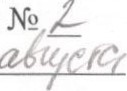 № 2
августа